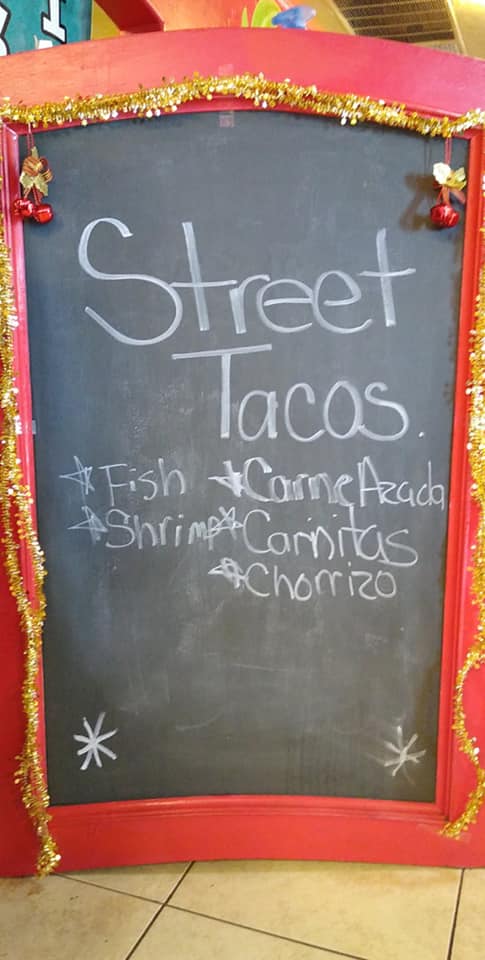 Street
Tacos.
Fish
Shrimp
Carne Azada
Carnitas
Chorrizo